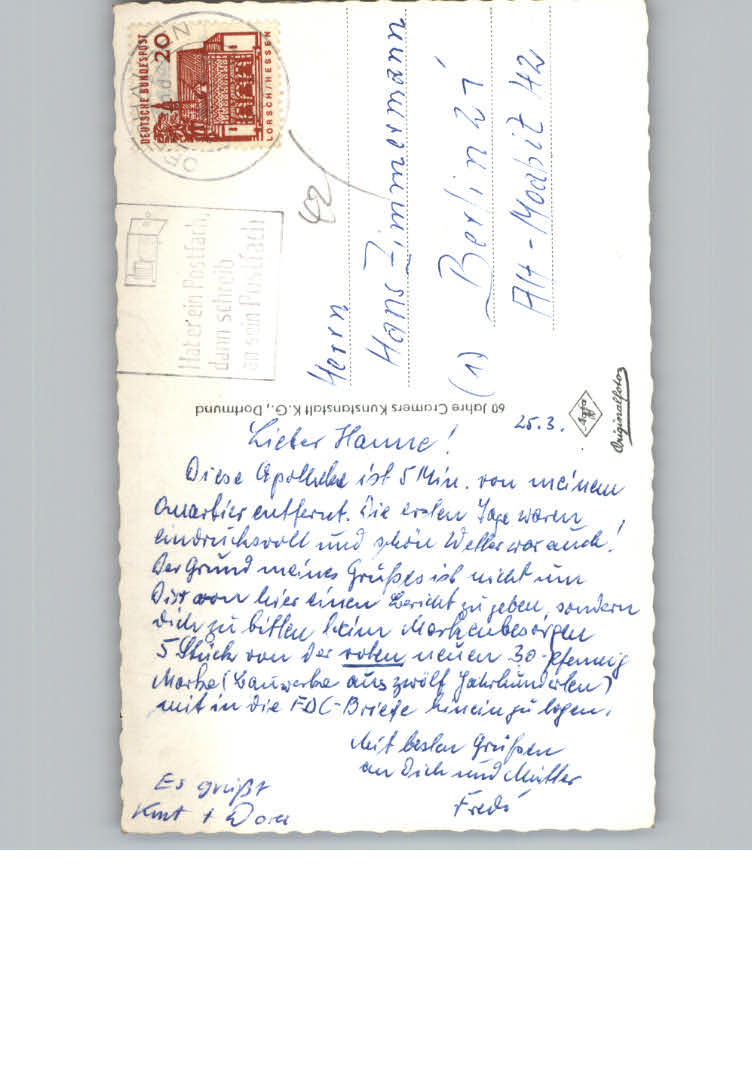 DEUTSCHE BUNDESPOST
20
LORSCH/HESSEN
Hat er ein Postfach,
dann schreib
an sein Postfach
42
Herrn
Hans Zimmermann
(1) Berlin 21
Alt-Moabit 42
60 Jahre Cramers Kunstanstalt K.G., Dortmund
Agfa
Originalfoto
25.3.
Lieber Hanne!
Diese Apotheke ist 5 Min. von meinem
Quartier entfernt. Die ersten Tage waren
eindrucksvoll und schön Wetter war auch!
Der Grund meines Grußes ist nicht um
Dir von hier einen Bericht zu geben, sondern
Dich zu bitten beim Markenbesorgen
5 Stück von der roten neuen 30-Pfennig
Marke (Bauwerke aus zwölf Jahrhunderten)
mit in die FDC-Briefe hineinzulegen.
Mit besten Grüßen
an Dich und Mutter
Fredi
Es grüßt
Kurt + Dora